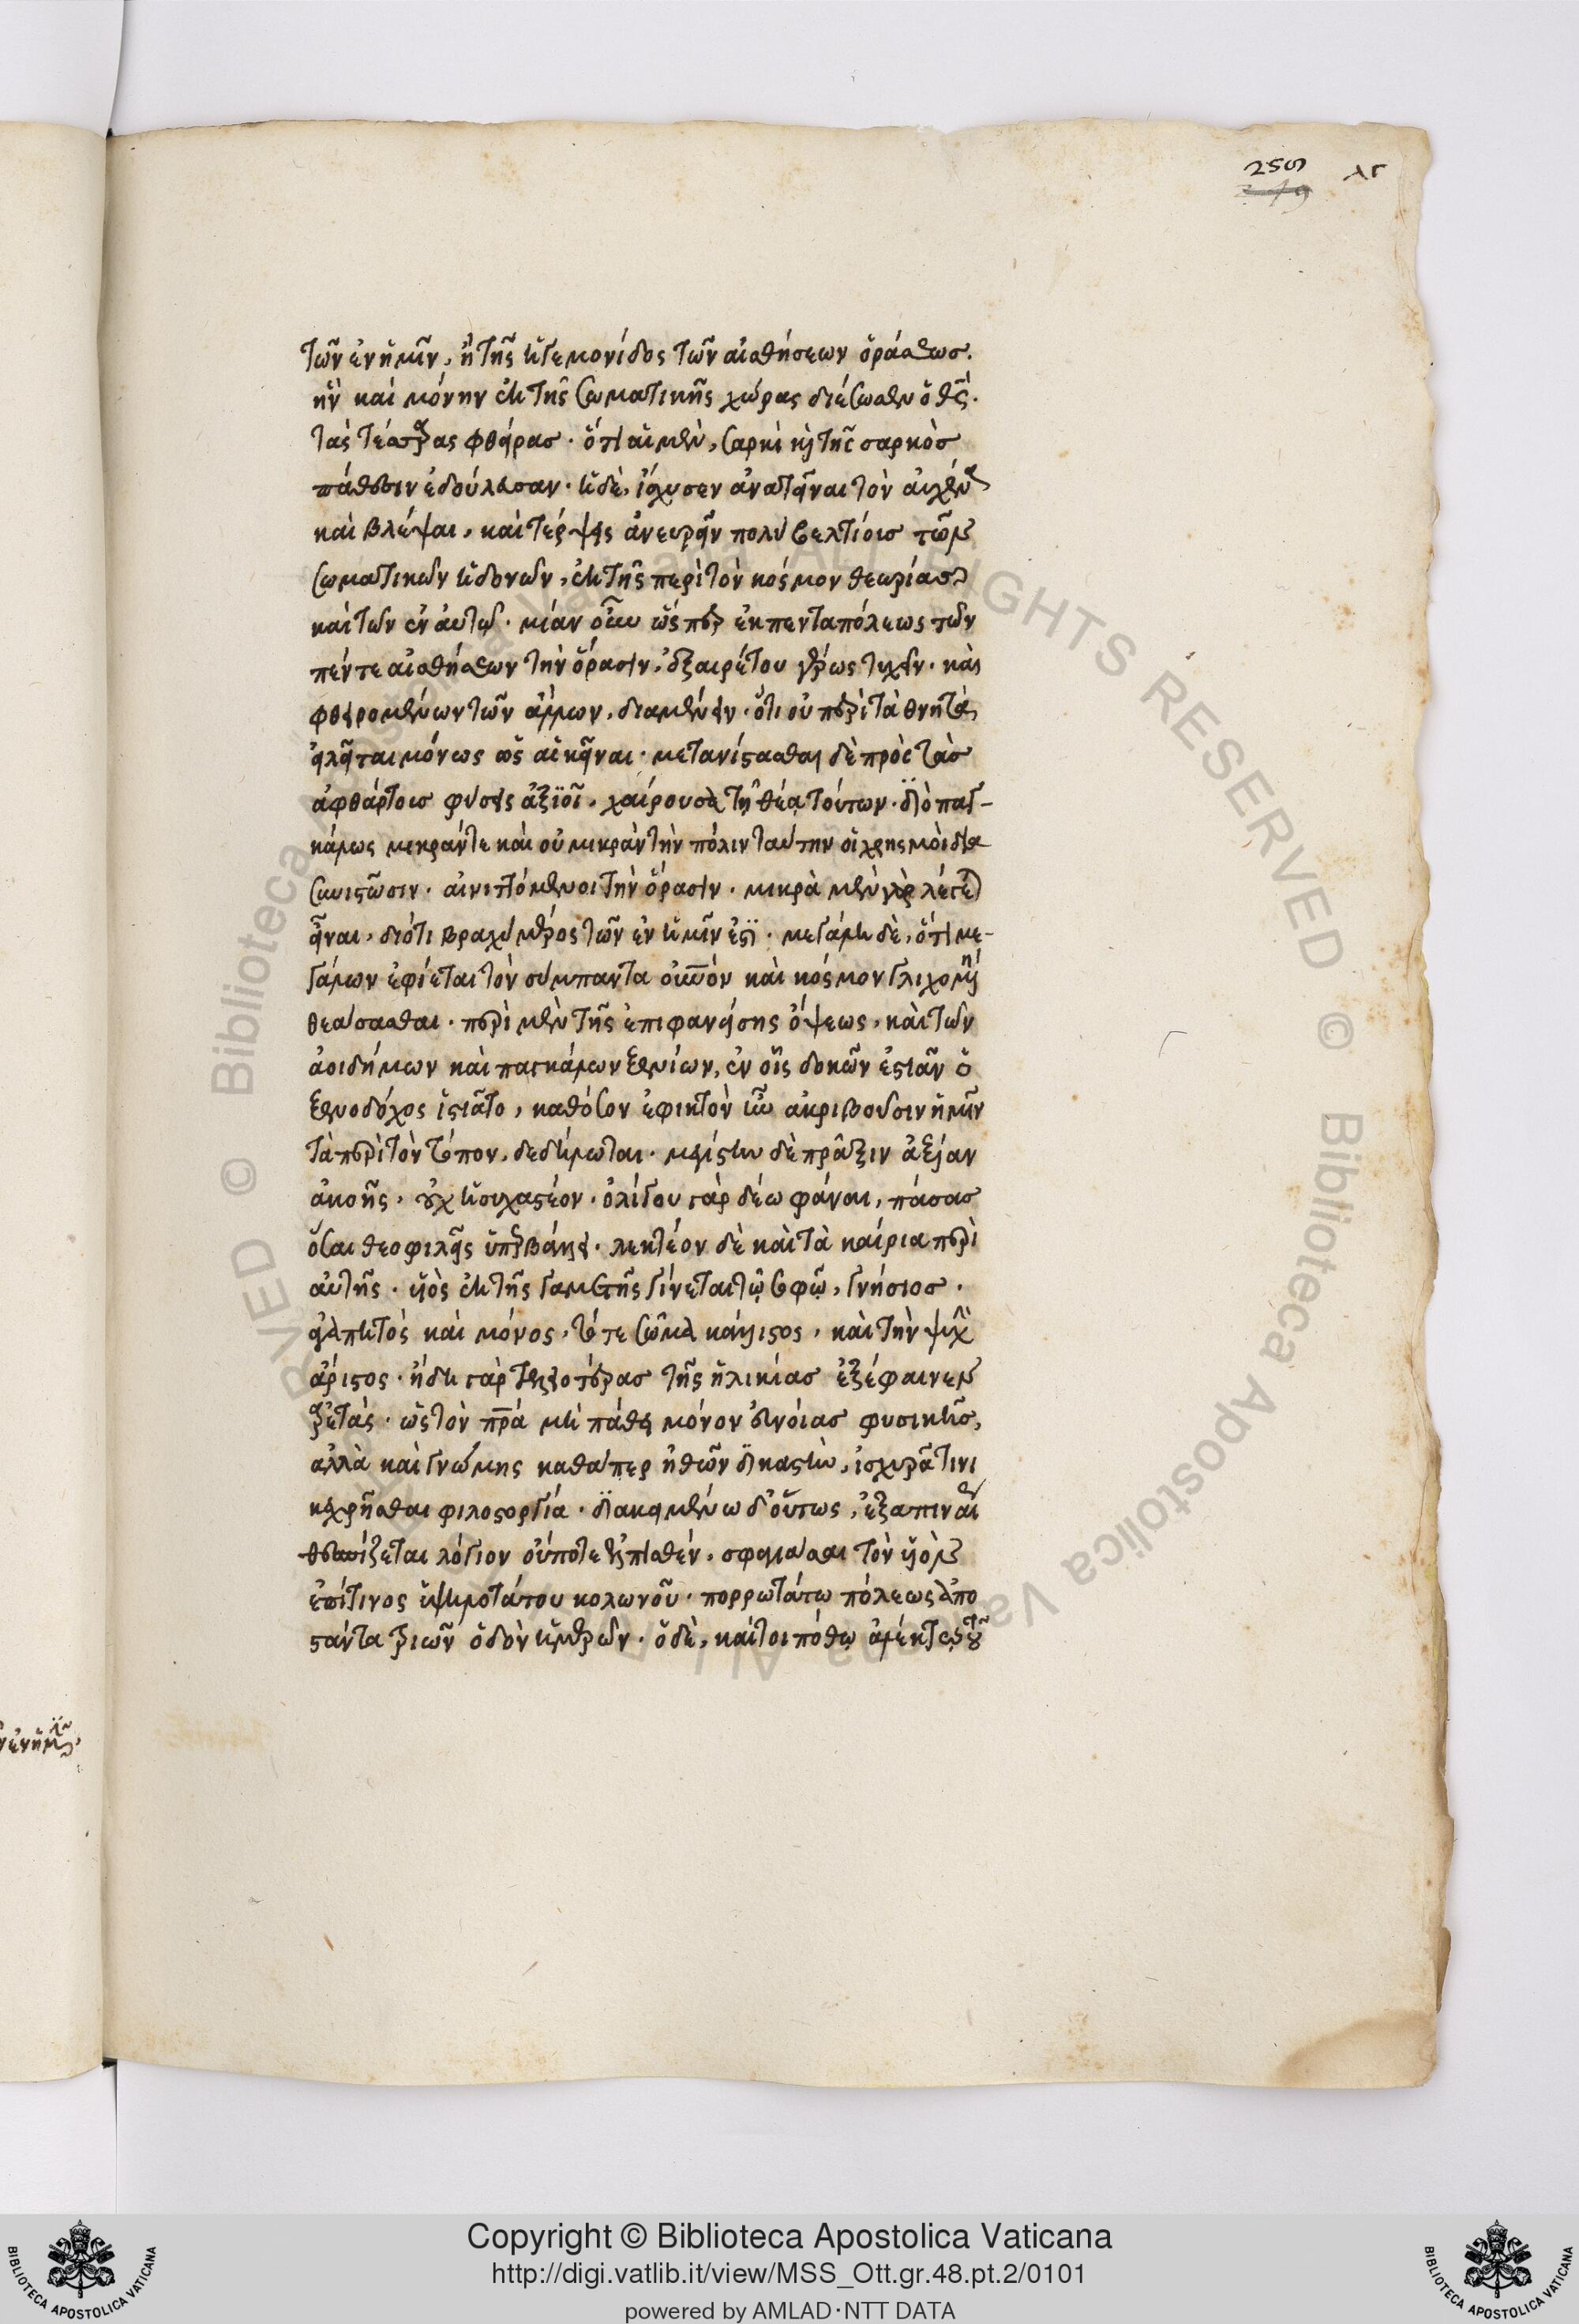 259 λγ
219
τῶν ἐν ἡμῖν, ἢ τῆς ἡγεμονίδος τῶν αἰσθήσεων ὁράσεως.
ἣν καὶ μόνην ἐκ τῆς σωματικῆς χώρας διέζωσεν ὁ θεός.
τὰς τέσσαρας φθείρας. ὅτι αἱ μὲν, σαρκὶ καὶ τῆς σαρκὸς
πάθεσιν ἐδούλευσαν. ἡ δὲ, ἴσχυσεν ἀνατεῖναι τὸν αὐχένα
καὶ βλέψαι, καὶ τέρψεις ἀνευρεῖν πολὺ βελτίοις τῶν
σωματικῶν ἡδονῶν, ἐκ τῆς περὶ τὸν κόσμον θεωρίας
καὶ τῶν ἐν αὐτῷ. μίαν οὖν ὥσπερ ἐκ πενταπόλεως τῶν
πέντε αἰσθήσεων τὴν ὅρασιν, ἐξαιρέτου γέρως τυχεῖν. καὶ
φθειρομένων τῶν ἄλλων, διαμένειν. ὅτι οὐ περὶ τὰ θνητὰ
εἱλεῖται μόνως ὡς ἐκεῖναι. μετανίστασθαι δὲ πρὸς τὰς
ἀφθάρτοις φύσεις ἀξιοῖ, χαίρουσα τῇ θέᾳ τούτων. διὸ παγ-
κάλως μικράν τε καὶ οὐ μικρὰν τὴν πόλιν ταύτην οἱ χρησμοὶ δια
συνιστῶσιν. αἰνιττόμενοι τὴν ὅρασιν. μικρὰ μὲν γὰρ λέγεται
εἶναι, διότι βραχὺ μέρος τῶν ἐν ἡμῖν ἐστι. μεγάλη δὲ, ὅτι με-
γάλων ἐφίεται τὸν σύμπαντα οὐρανὸν καὶ κόσμον γλιχομένη
θεάσασθαι. περὶ μὲν τῆς ἐπιφανείσης ὄψεως, καὶ τῶν
ἀοιδήμων καὶ παγκάλων ξενίων, ἐν οἷς δοκῶν ἑστιᾶν ὁ
ξενοδόχος εἱστιᾶτο, καθόσον ἐφικτὸν ἦν ἀκριβοῦσιν ἡμῖν
τὰ περὶ τὸν τόπον, δεδήλωται. μεγίστην δὲ πρᾶξιν ἀξίαν
ἀκοῆς, οὐχ ἡσυχαστέον. ὀλίγου γὰρ δέω φάναι, πάσας
ὅσαι θεοφιλεῖς ὑπερβάλλει. λεκτέον δὲ καὶ τὰ καίρια περὶ
αὐτῆς. υἱὸς ἐκ τῆς γαμετῆς γίνεται τῷ σοφῷ, γνήσιος.
ἀγαπητὸς καὶ μόνος, τό τε σῶμα κάλλιστος, καὶ τὴν ψυχὴν
ἄριστος. ἤδη γὰρ τελειοτέρας τῆς ἡλικίας ἐξέφαινεν
ἀρετὰς. ὡς τὸν πατέρα μὴ πάθει μόνον εὐνοίας φυσικῆς,
ἀλλὰ καὶ γνώμης καθάπερ ἠθῶν δικαστὴν, ἰσχυρᾷ τινι
κεχρῆσθαι φιλοστοργίᾳ. διακειμένῳ δ' οὕτως, ἐξαπιναίως
θεσπίζεται λόγιον οὔποτε ἐλπισθέν, σφαγιάσαι τὸν υἱὸν
ἐπί τινος ὑψηλοτάτου κολωνοῦ. πορρωτάτω πόλεως ἀπο
στάντα τριῶν ὁδὸν ἡμερῶν. ὁ δὲ, καίτοι πόθῳ ἀλέκτῳ τοῦ
Copyright © Biblioteca Apostolica Vaticana
http://digi.vatlib.it/view/MSS_Ott.gr.48.pt.2/0101
powered by AMLAD·NTT DATA